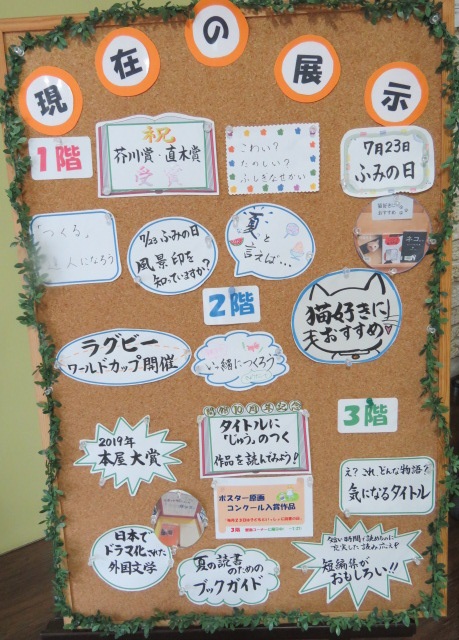 現在の展示
1階
祝
芥川賞・直木賞
受賞
こわい?
たのしい?
ふしぎなせかい
7月23日
ふみの日
つくる。
人になろう
7/23 ふみの日
風景印を
知っていますか?
夏と
言えば…
猫好きに
おすすめ
ネコ
2階
猫好きに
大おすすめ!
ラグビー
ワールドカップ開催
一緒につくろう
3階
2019年
本屋大賞
タイトルに
「じゅう」のつく
作品を読んでみよう!
え?これ、どんな物語?
気になるタイトル
ポスター原画
コンクール入賞作品
日本で
ドラマ化された
外国文学
夏の読書
のための
ブックガイド
短い時間で読めるのに
充実した読みごたえ
短編集が
おもしろい!!